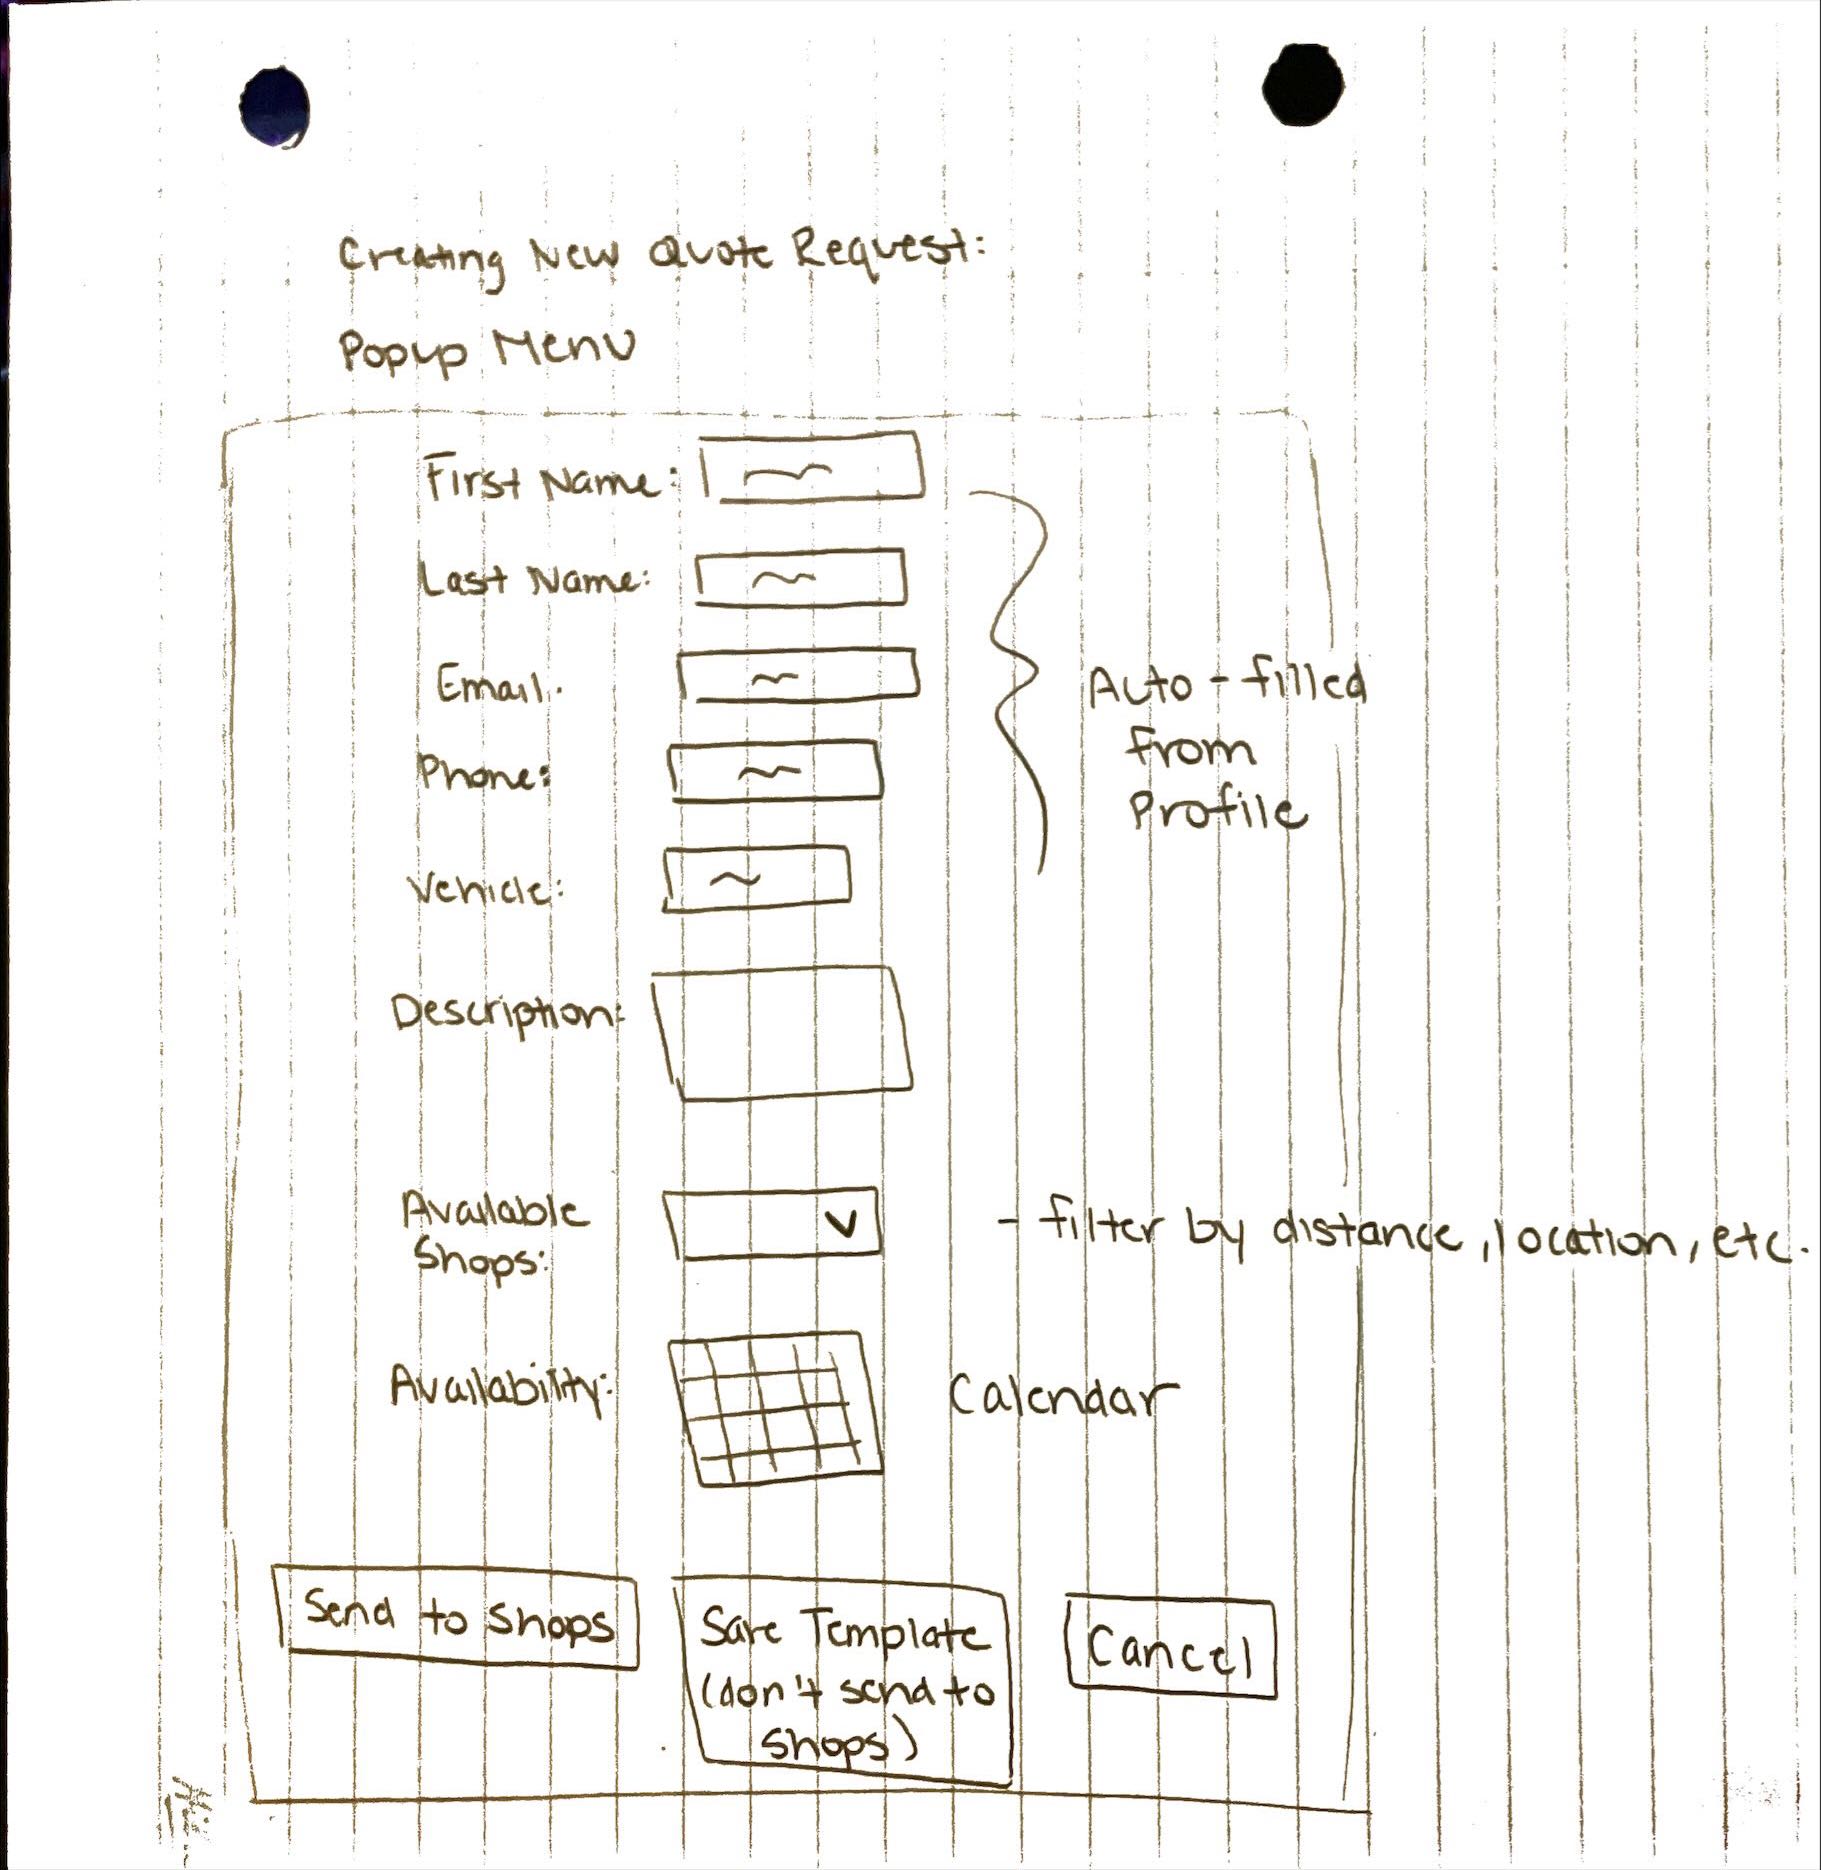 Creating New Quote Request:
Popup Menu
First Name:
Last Name:
Email:
Phone:
Vehicle:
Auto-filled
from
Profile
Description:
Available
Shops:
- filter by distance, location, etc.
Availability:
Calendar
Send to Shops
Save Template
(don't send to
shops)
Cancel